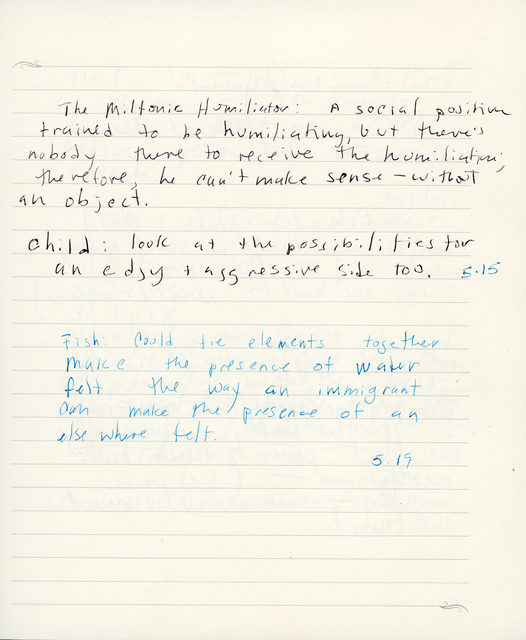 The Miltonic Humiliator: A social position
trained to be humiliating, but there's
nobody there to receive the humiliation;
therefore, he can't make sense – without
an object.
Child: look at the possibilities for
an edgy + aggressive side too. 5.15
Fish could tie elements together
make the presence of water
felt the way an immigrant
can make the presence of an
elsewhere felt.
5.19